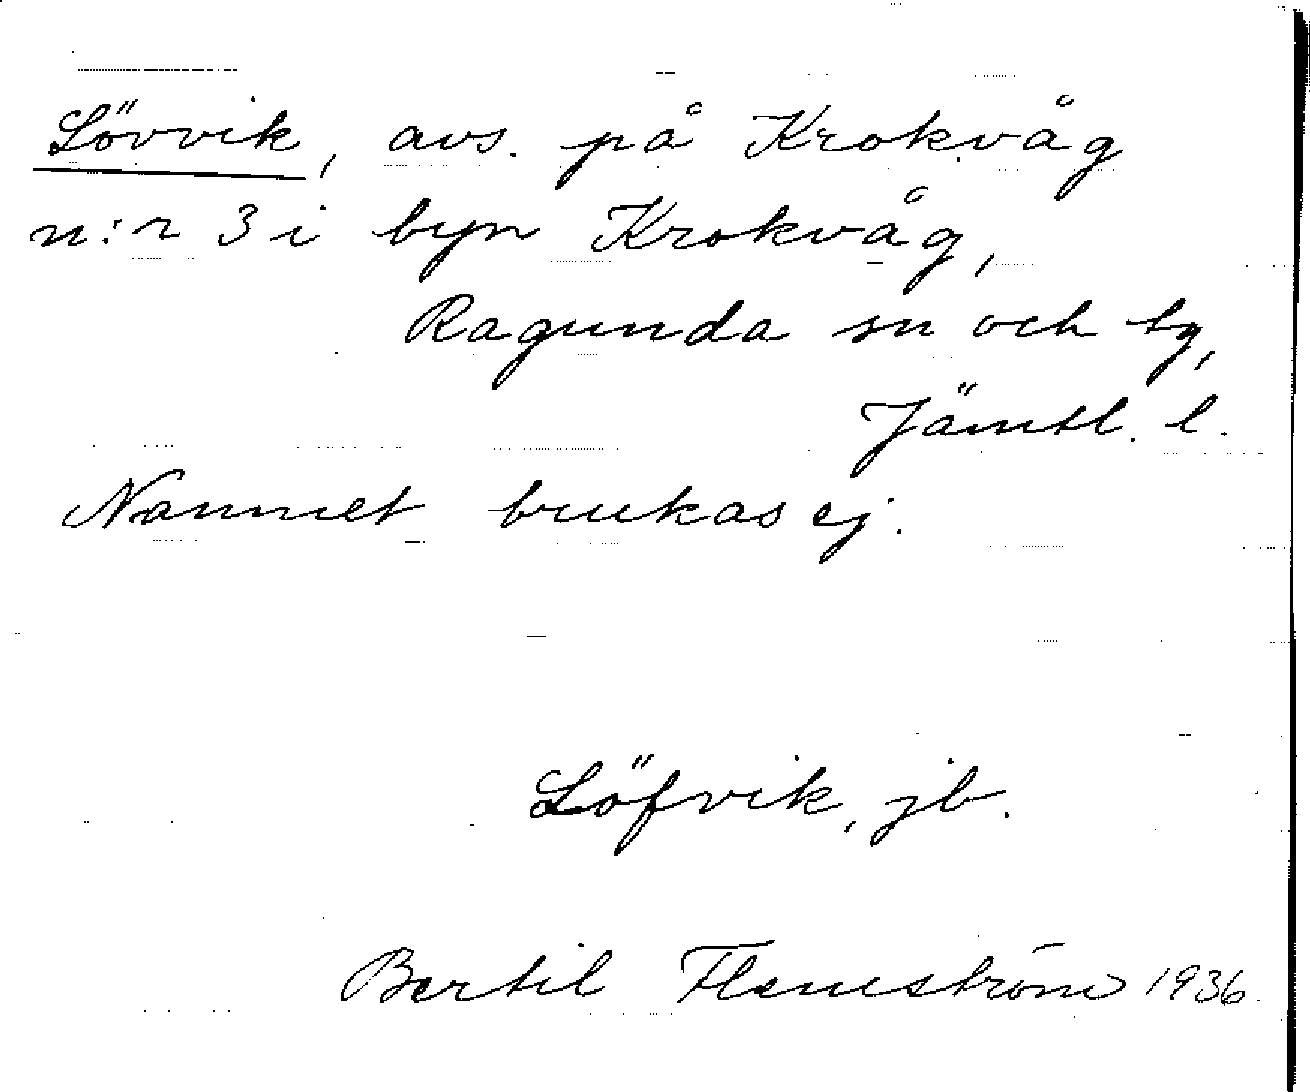 Lövvik, avs. på Krokvåg
n:r 3 i byn Krokvåg,
Ragunda sn och tg,
Jämtl. l.
Namnet brukas ej.
Löfvik, jb.
Bertil Flemström 1936